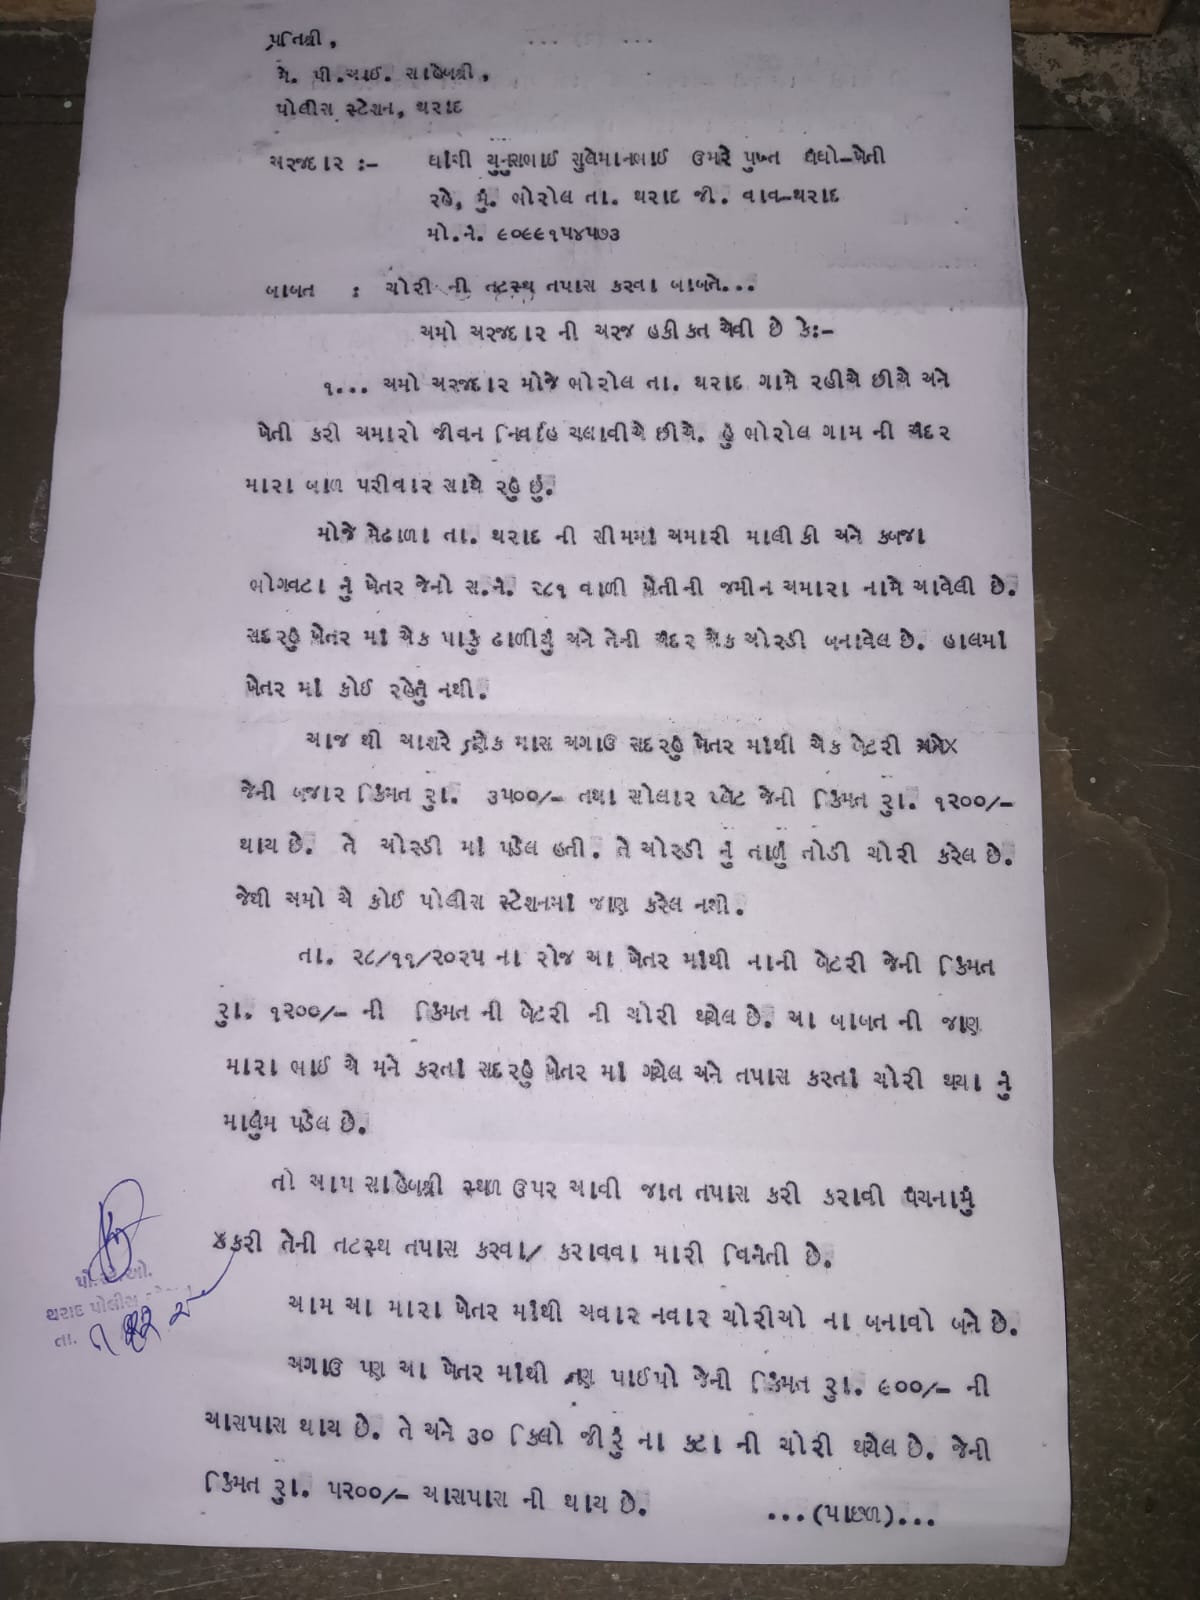 પ્રતિશ્રી,
મે. પી.આઈ. સાહેબશ્રી,
પોલીસ સ્ટેશન, થરાદ
અરજદાર :- ઘાંચી યુનુસભાઈ સુલેમાનભાઈ ઉમરે પુખ્ત ધંધો-ખેતી
રહે, મું. ભોરોલ તા. થરાદ જી. વાવ-થરાદ
મો.નં. ૯૦૯૯૧૫૪૫૭૩
બાબત : ચોરી ની તટસ્થ તપાસ કરવા બાબતે...
અમો અરજદાર ની અરજ હકીકત એવી છે કે:-
૧... અમો અરજદાર મોજે ભોરોલ તા. થરાદ ગામે રહીએ છીએ અને
ખેતી કરી અમારો જીવન નિર્વાહ ચલાવીએ છીએ. હું ભોરોલ ગામ ની અંદર
મારા બાળ પરીવાર સાથે રહું છું.
મોજે મેઢાળા તા. થરાદ ની સીમમાં અમારી માલીકી અને કબજા
ભોગવટા નું ખેતર જેનો સ.નં. ૨૮૧ વાળી ખેતીની જમીન અમારા નામે આવેલી છે.
સદરહું ખેતર માં એક પાકું ઢાળીયું અને તેની અંદર એક ઓરડી બનાવેલ છે. હાલમાં
ખેતર માં કોઈ રહેતું નથી.
આજ થી આશરે માસ અગાઉ સદરહું ખેતર માંથી એક બેટરી
જેની બજાર કિંમત રૂા. ૩૫૦૦/- તથા સોલાર પ્લેટ જેની કિંમત રૂા. ૧૨૦૦/-
થાય છે. તે ઓરડી માં પડેલ હતી. તે ઓરડી નું તાળું તોડી ચોરી કરેલ છે.
જેથી અમો એ કોઈ પોલીસ સ્ટેશનમાં જાણ કરેલ નથી.
તા. ૨૮/૧૧/૨૦૨૫ ના રોજ આ ખેતર માંથી નાની બેટરી જેની કિંમત
રૂા. ૧૨૦૦/- ની કિંમત ની બેટરી ની ચોરી થયેલ છે. આ બાબત ની જાણ
મારા ભાઈ એ મને કરતાં સદરહું ખેતર માં ગયેલ અને તપાસ કરતાં ચોરી થયા નું
માલુમ પડેલ છે.
તો આપ સાહેબશ્રી સ્થળ ઉપર આવી જાત તપાસ કરી કરાવી પંચનામું
કરી તેની તટસ્થ તપાસ કરવા/ કરાવવા મારી વિનંતી છે.
આમ આ મારા ખેતર માંથી અવાર નવાર ચોરીઓ ના બનાવો બને છે.
અગાઉ પણ આ ખેતર માંથી ત્રણ પાઈપો જેની કિંમત રૂા. ૯૦૦/- ની
આસપાસ થાય છે. તે અને ૩૦ કિલો જીરું ના કટા ની ચોરી થયેલ છે. જેની
કિંમત રૂા. ૫૨૦૦/- આસપાસ ની થાય છે.
...(પાછળ)...
પો.સ્ટે.ઓ.
થરાદ પોલીસ
તા.